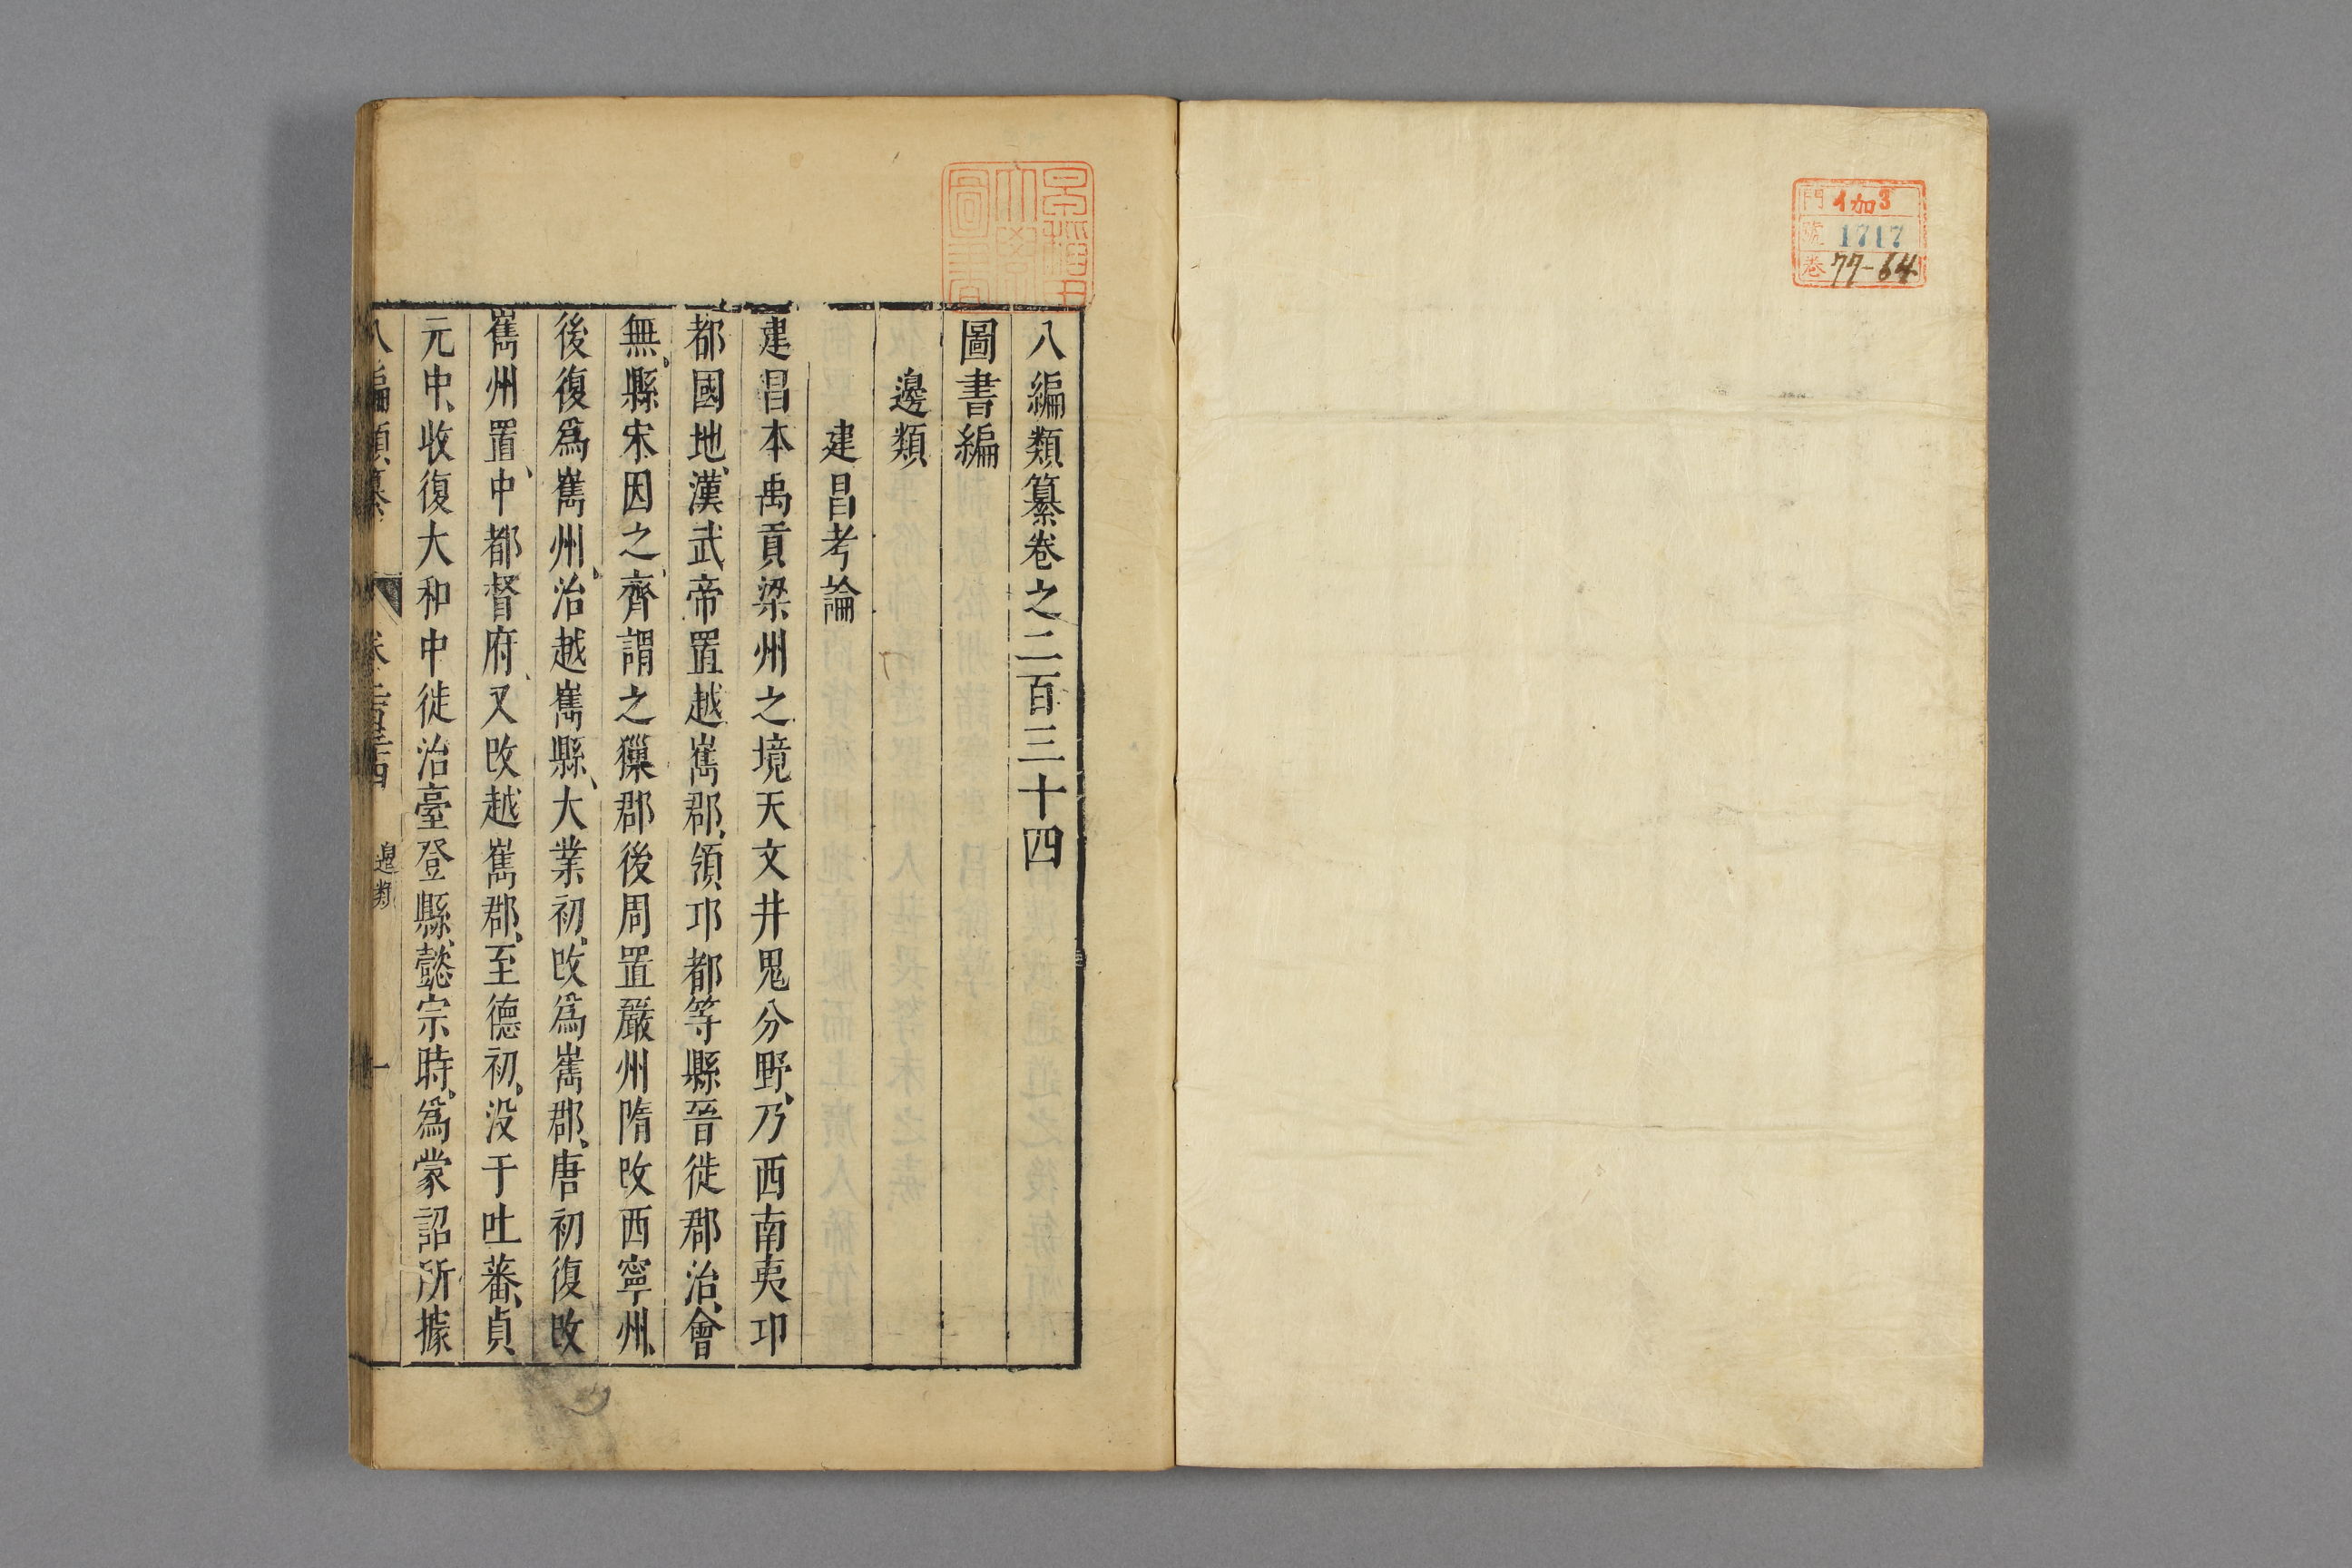 門 イ加3
號 1717
巻 77-64
早稲田大學圖書
八編類纂卷之二百三十四
圖書編
邊類
建昌考論
建昌本禹貢梁州之境天文井鬼分野、乃西南夷卭
都國地、漢武帝置越嶲郡、領卭都等縣晉徙郡治、會
無、縣宋因之、齊謂之獠郡後周置嚴州隋改西寧州、
後復爲嶲州、治越嶲縣、大業初、改爲嶲郡、唐初復改
嶲州置、中都督府、又改越嶲郡、至德初、没于吐蕃、貞
元中、收復大和中徙治臺登縣、懿宗時、爲蒙詔所據
八編類纂 卷二百三十四 邊類 一